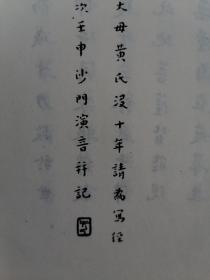 大母黄氏没十年請為寫經
次壬申沙門演音幷記